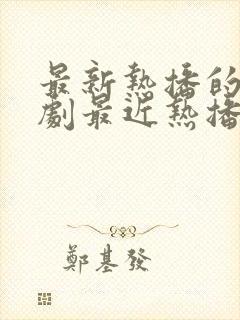 最新熱播的
劇最近熱播
鄭基發